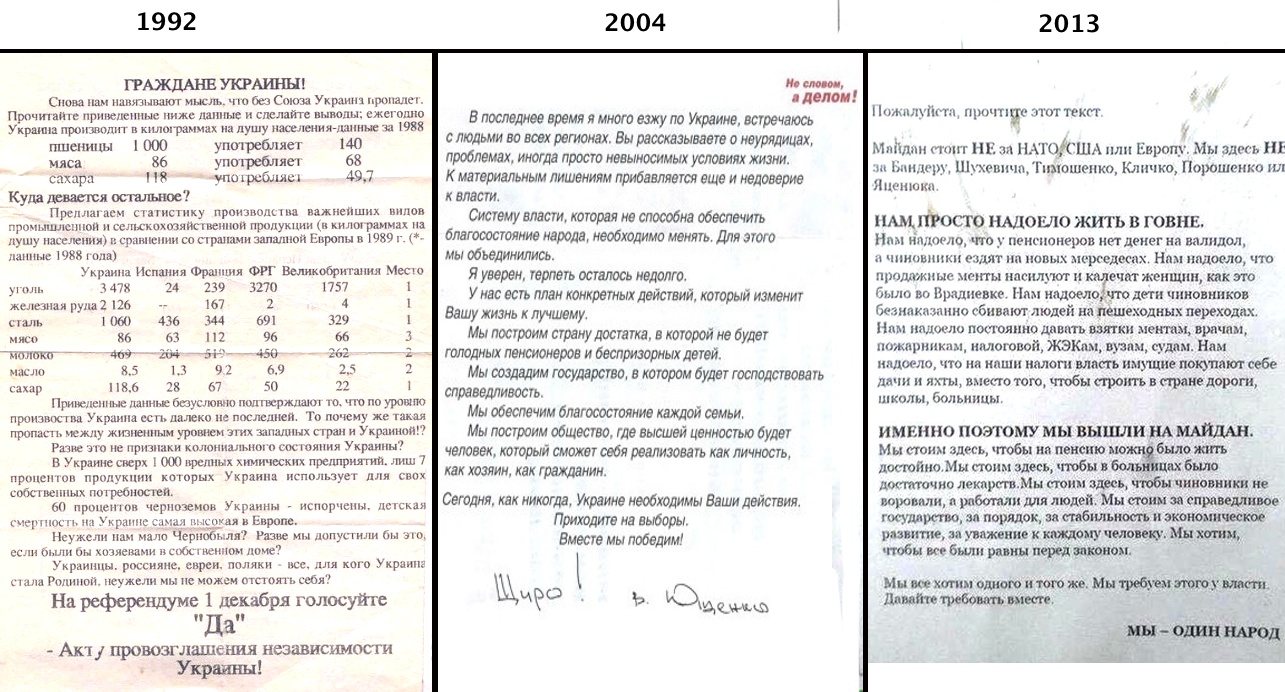 1992
2004
2013
ГРАЖДАНЕ УКРАИНЫ!
Снова нам навязывают мысль, что без Союза Украина пропадет.
Прочитайте приведенные ниже данные и сделайте выводы; ежегодно
Украина производит в килограммах на душу населения-данные за 1988
пшеницы 1 000 употребляет 140
мяса 86 употребляет 68
сахара 118 употребляет 49,7
Куда девается остальное?
Предлагаем статистику производства важнейших видов
промышленной и сельскохозяйственной продукции (в килограммах на
душу населения) в сравнении со странами западной Европы в 1989 г. (*-
данные 1988 года)
Украина Испания Франция ФРГ Великобритания Место
уголь 3 478 24 239 3270 1757 1
железная руда 2 126 -- 167 2 4 1
сталь 1 060 436 344 691 329 1
мясо 86 63 112 96 66 3
молоко 469 204 519 450 262 2
масло 8,5 1,3 9.2 6,9 2,5 2
сахар 118,6 28 67 50 22 1
Приведенные данные безусловно подтверждают то, что по уровню
произвоства Украина есть далеко не последней. То почему же такая
пропасть между жизненным уровнем этих западных стран и Украиной!?
Разве это не признаки колониального состояния Украины?
В Украине сверх 1 000 вредных химических предприятий, лиш 7
процентов продукции которых Украина использует для свох
собственных потребностей.
60 процентов черноземов Украины - испорчены, детская
смертность на Украине самая высокая в Европе.
Неужели нам мало Чернобыля? Разве мы допустили бы это,
если были бы хозяевами в собственном доме?
Украинцы, россияне, евреи, поляки - все, для кого Украина
стала Родиной, неужели мы не можем отстоять себя?
На референдуме 1 декабря голосуйте
"Да"
- Акту провозглашения независимости
Украины!
Не словом,
а делом!
В последнее время я много езжу по Украине, встречаюсь
с людьми во всех регионах. Вы рассказываете о неурядицах,
проблемах, иногда просто невыносимых условиях жизни.
К материальным лишениям прибавляется еще и недоверие
к власти.
Систему власти, которая не способна обеспечить
благосостояние народа, необходимо менять. Для этого
мы объединились.
Я уверен, терпеть осталось недолго.
У нас есть план конкретных действий, который изменит
Вашу жизнь к лучшему.
Мы построим страну достатка, в которой не будет
голодных пенсионеров и беспризорных детей.
Мы создадим государство, в котором будет господствовать
справедливость.
Мы обеспечим благосостояние каждой семьи.
Мы построим общество, где высшей ценностью будет
человек, который сможет себя реализовать как личность,
как хозяин, как гражданин.
Сегодня, как никогда, Украине необходимы Ваши действия.
Приходите на выборы.
Вместе мы победим!
Щиро! В. Ющенко
Пожалуйста, прочтите этот текст.
Майдан стоит НЕ за НАТО, США или Европу. Мы здесь НЕ
за Бандеру, Шухевича, Тимошенко, Кличко, Порошенко ил
Яценюка.
НАМ ПРОСТО НАДОЕЛО ЖИТЬ В ГОВНЕ.
Нам надоело, что у пенсионеров нет денег на валидол,
а чиновники ездят на новых мерседесах. Нам надоело, что
продажные менты насилуют и калечат женщин, как это
было во Врадиевке. Нам надоело, что дети чиновников
безнаказанно сбивают людей на пешеходных переходах.
Нам надоело постоянно давать взятки ментам, врачам,
пожарникам, налоговой, ЖЭКам, вузам, судам. Нам
надоело, что на наши налоги власть имущие покупают себе
дачи и яхты, вместо того, чтобы строить в стране дороги,
школы, больницы.
ИМЕННО ПОЭТОМУ МЫ ВЫШЛИ НА МАЙДАН.
Мы стоим здесь, чтобы на пенсию можно было жить
достойно.Мы стоим здесь, чтобы в больницах было
достаточно лекарств.Мы стоим здесь, чтобы чиновники не
воровали, а работали для людей. Мы стоим за справедливое
государство, за порядок, за стабильность и экономическое
развитие, за уважение к каждому человеку. Мы хотим,
чтобы все были равны перед законом.
Мы все хотим одного и того же. Мы требуем этого у власти.
Давайте требовать вместе.
МЫ – ОДИН НАРОД